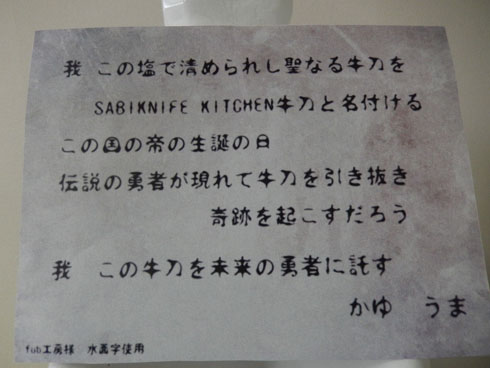 我 この塩で清められし聖なる牛刀を
SABIKNIFE KITCHEN牛刀と名付ける
この国の帝の生誕の日
伝説の勇者が現れて牛刀を引き抜き
奇跡を起こすだろう
我 この牛刀を未来の勇者に託す
かゆ うま
fub工房様 水面字使用